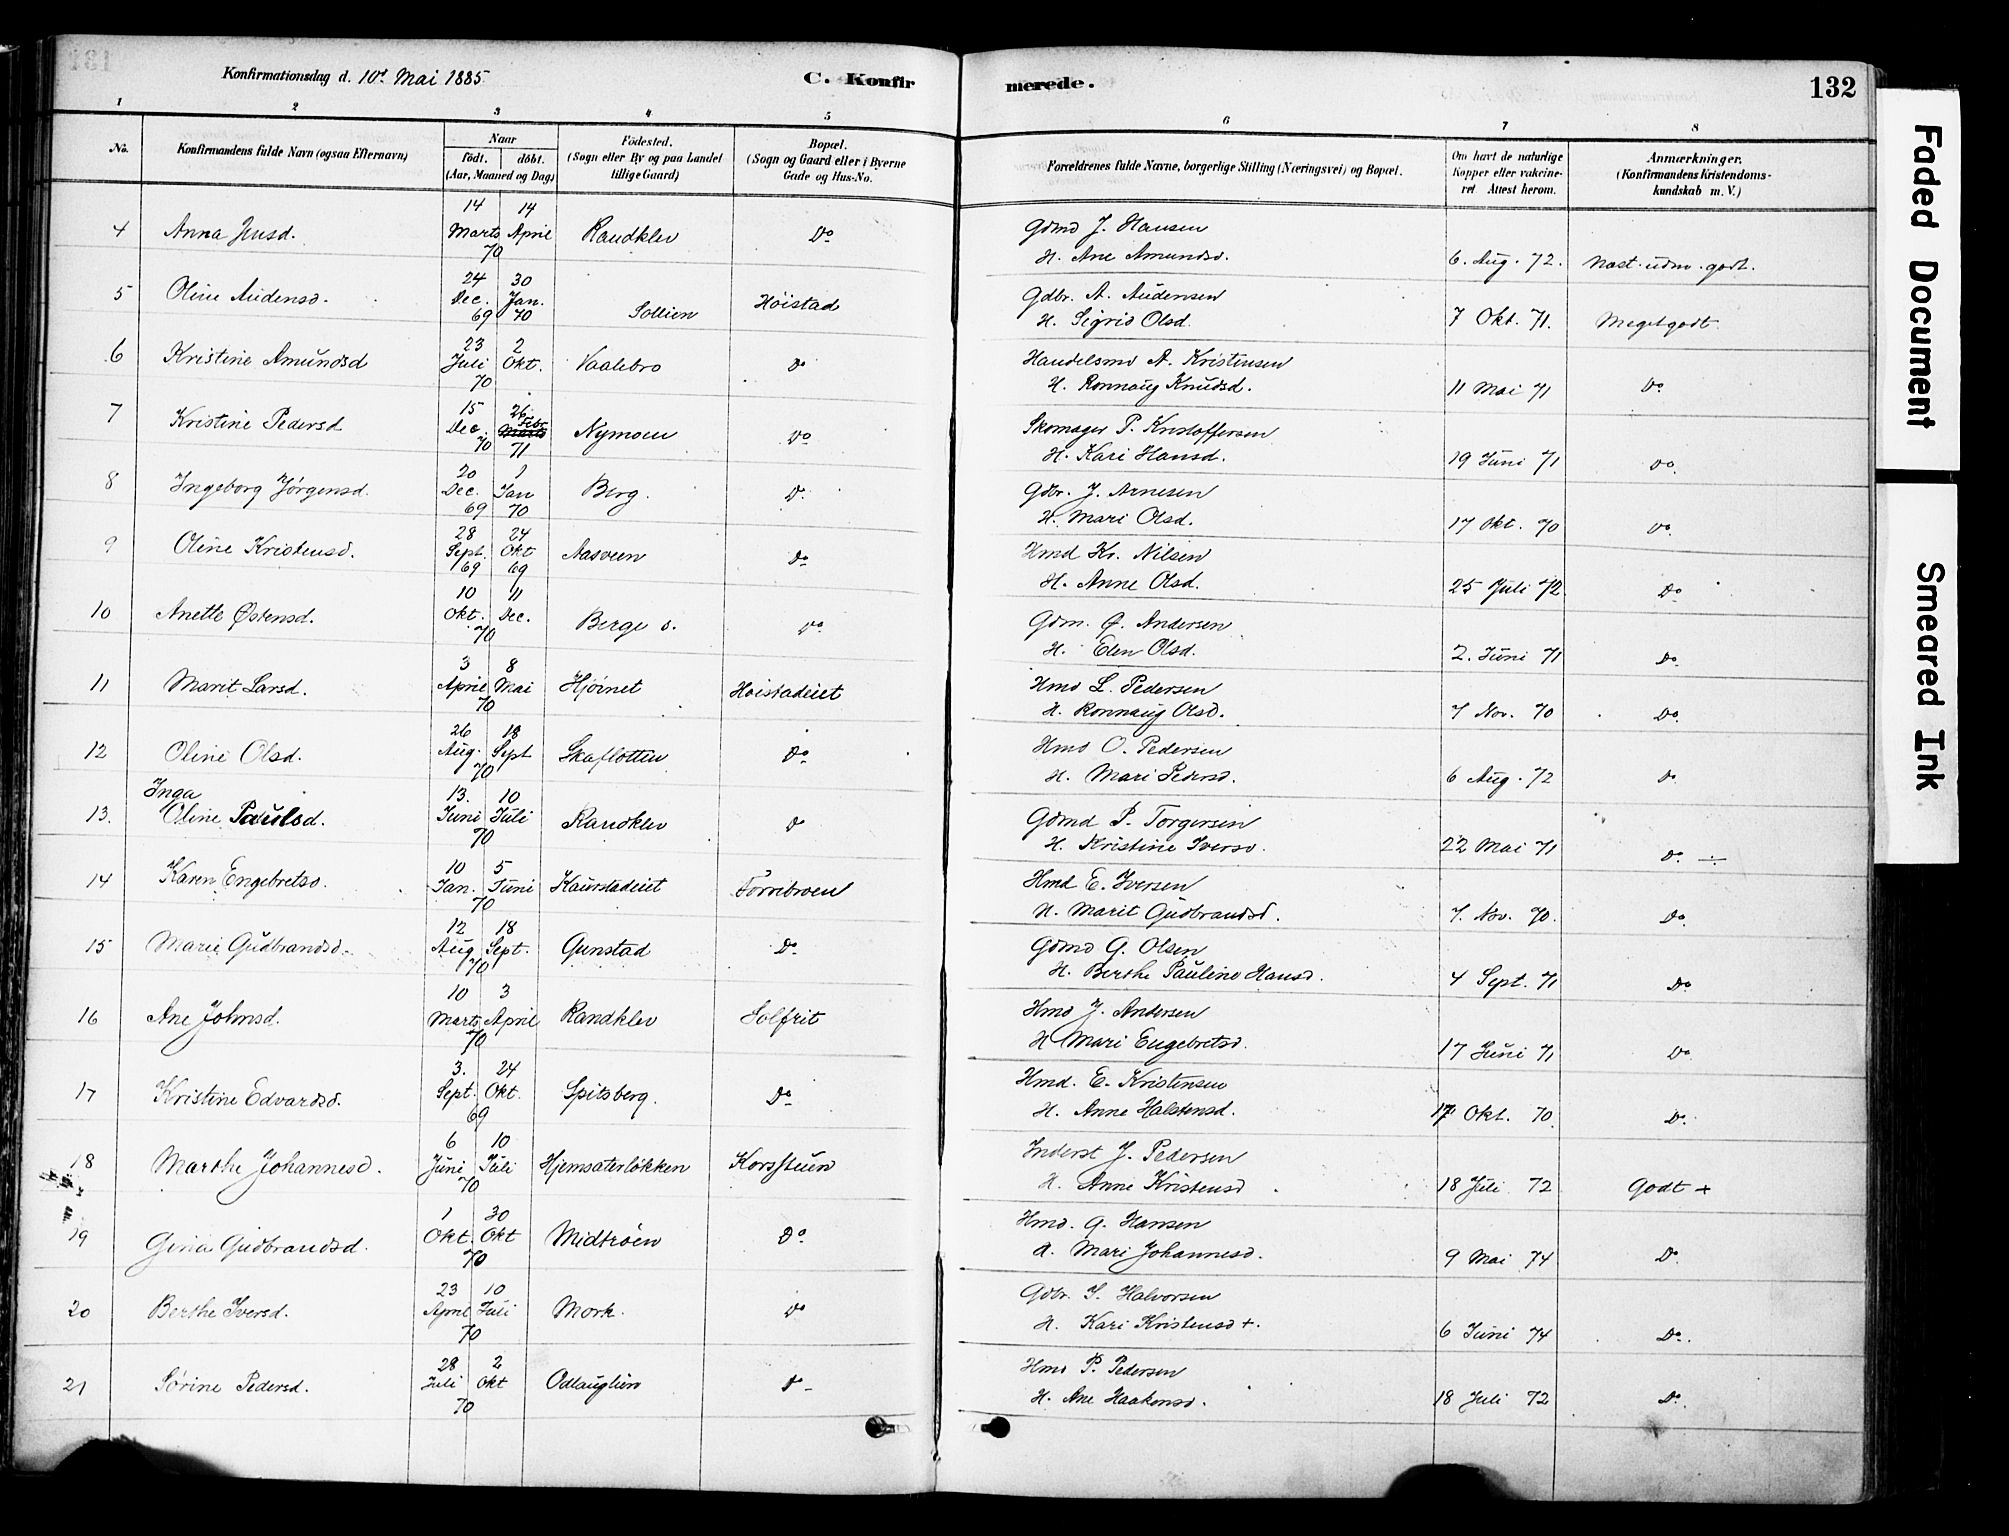 Konfirmationsdag d. 10de Mai 1885 C. Konfirmerede. 132
1 2 3 4 5 6 7 8
No. Konfirmandens fulde Navn (ogsaa Efternavn) Naar födt. döbt. (Aar, Maaned og Dag) Födested. (Sogn eller By og paa Landet tillige Gaard) Bopæl. (Sogn og Gaard eller i Byerne Gade og Hus-No. Forældrenes fulde Navne, borgerlige Stilling (Næringsvei) og Bopæl. Om havt de naturlige Kopper eller vakcineret. Attest herom. Anmærkninger. (Konfirmandens Kristendomskundskab m. V.)
4 Anna Jensd. 14 Marts 70 14 April Randklev Do Gdmd J. Hansen
H. Ane Amundsd. 6. Aug. 72. Næst. udm. godt.
5 Oline Audensd. 24 Dec. 69 30 Jan. 70 Sollien Höistad Gdbr. A. Audensen
H. Sigrid Olsd. 7 Okt. 71. Meget godt
6 Kristine Amundsd 23 Juli 70 2 Okt. Vaalebro Do Handelsmd A. Kristensen
H. Ronnaug Knudsd. 11 Mai 71 Do
7 Kristine Pedersd 15 Dec. 70 26 Febr. Marts 71 Nymoen Do Skomager P. Kristoffersen
H. Kari Hansd. 19 Juni 71 Do.
8 Ingeborg Jørgensd. 20 Dec. 69 1 Jan 70 Berg. Do Gdbr. J. Arnesen
H. Mari Olsd. 17 Okt. 70 Do.
9 Oline Kristensd. 28 Sept. 69 24 Okt 69 Aasveen Do Hmd Kr. Nilsen
H. Anne Olsd. 25 Juli 72 Do
10 Anette Østensd. 10 Okt. 70 11 Dec. Berge s. Do Gdm. Ø. Andersen
H. Elen Olsd. 2. Juni 71 Do
11 Marit Larsd. 3 April 70 8 Mai Hjörnet Höistadeiet Hmd L. Pedersen
H. Ronnaug Olsd. 7 Nov. 70 Do
12 Oline Olsd. 26 Aug. 70 18 Sept Skaflotten Do Hmd O. Pedersen
H. Mari Pedersd. 6 Aug. 72 Do
13. Inga Oline Paulsd. 13. Juni 70 10 Juli Randklev Do Gdmd P. Torgersen
H. Kristine Iversd. 22 Mai 71 Do
14 Karen Engebretsd. 10 Jan. 70 5 Juni Kaurstadeiet Forrebroen Hmd E. Iversen
H. Marit Gudbrandsd. 7. Nov. 70. Do
15 Marie Gudbrandsd. 12 Aug 70 18 Sept. Gunstad Do Gdmd G. Olsen
H. Berthe Pauline Hansd. 4 Sept. 71 Do
16 Ane Johnsd. 10 Marts 70 3 April Randklev Solfrit Hmd J. Andersen
H Mari Engebretsd. 17 Juni 71 Do
17 Kristine Edvardsd. 3. Sept. 69 24 Okt. Spitsberg. Do Hmd. E. Kristensen
H. Anne Halstensd. 17 Okt. 70. Do
18 Marthe Johannesd. 6 Juni 70 10 Juli Hjemsæterløkken Korssteen Inderst J. Pedersen
H. Anne Kristensd 18 Juli 72 Godt +
19 Gina Gudbrandsd. 1 Okt. 70 30 Okt Midtröen Do Hmd. G. Hansen
H. Mari Johannesd. 9 Mai 74 Do
20 Berthe Iversd. 23 April 70 10 Juli Mork. Do Gdbr. I. Halvorsen
H. Kari Kristensd +. 6 Juni 74 Do.
21 Sörine Pedersd. 28 Juli 70 2 Okt Odlauglien Do Hmd P. Pedersen
H. Ane Haakonsd. 18 Juli 72 Do.
Faded Document
Smeared Ink